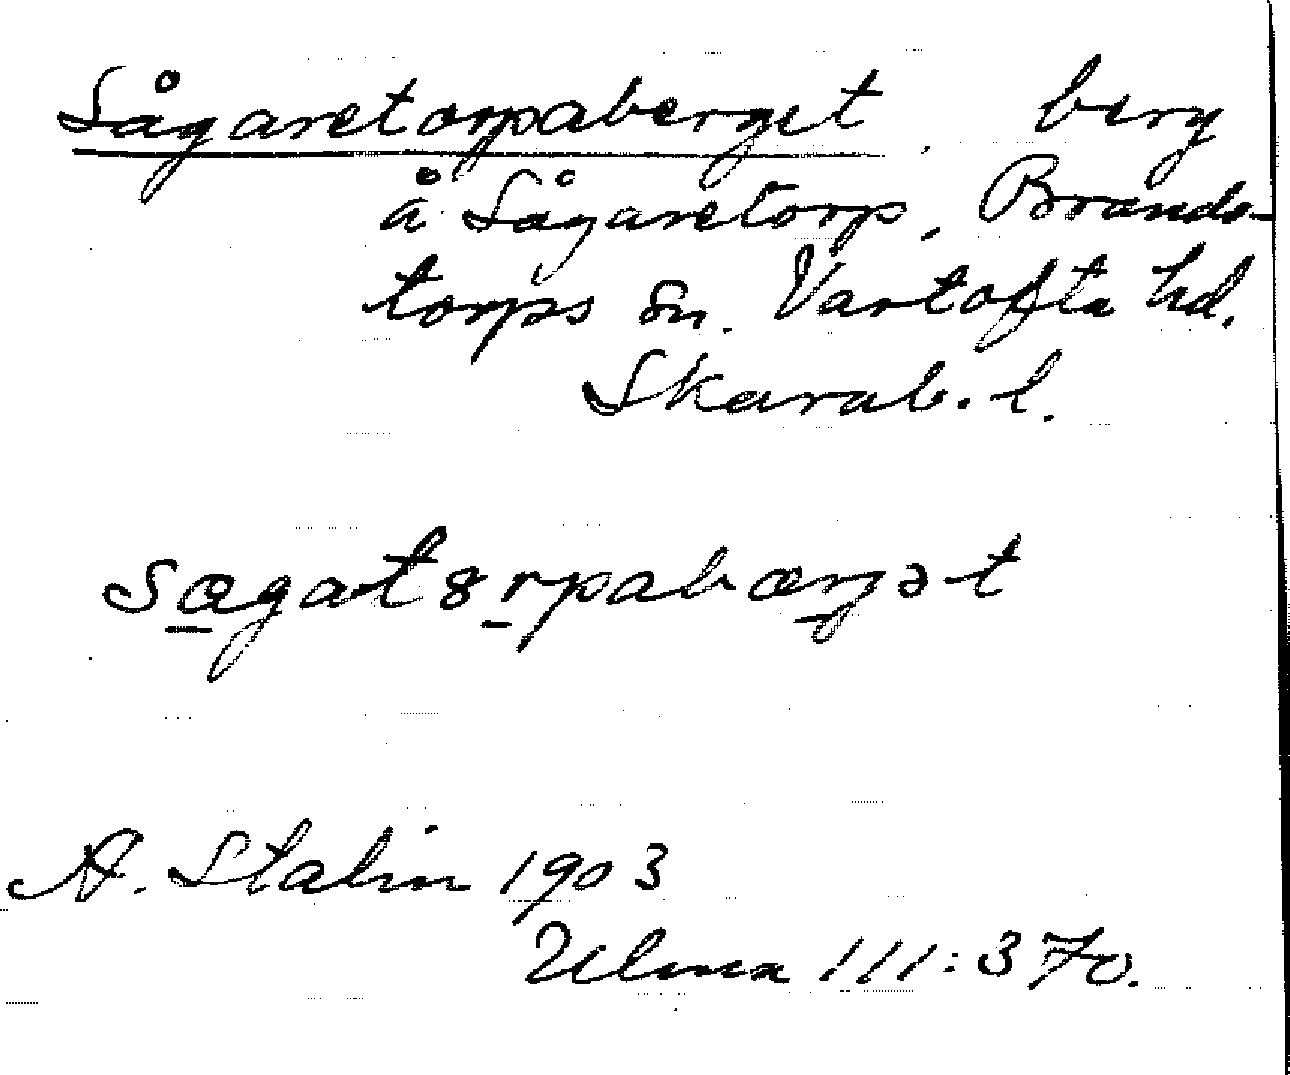 Sågaretorpaberget, berg
å Sågaretorp, Brands-
torps sn. Vartofta hd.
Skarab. l.
sægatɞrpabærgət
A. Stalin 1903
Ulma 111:370.